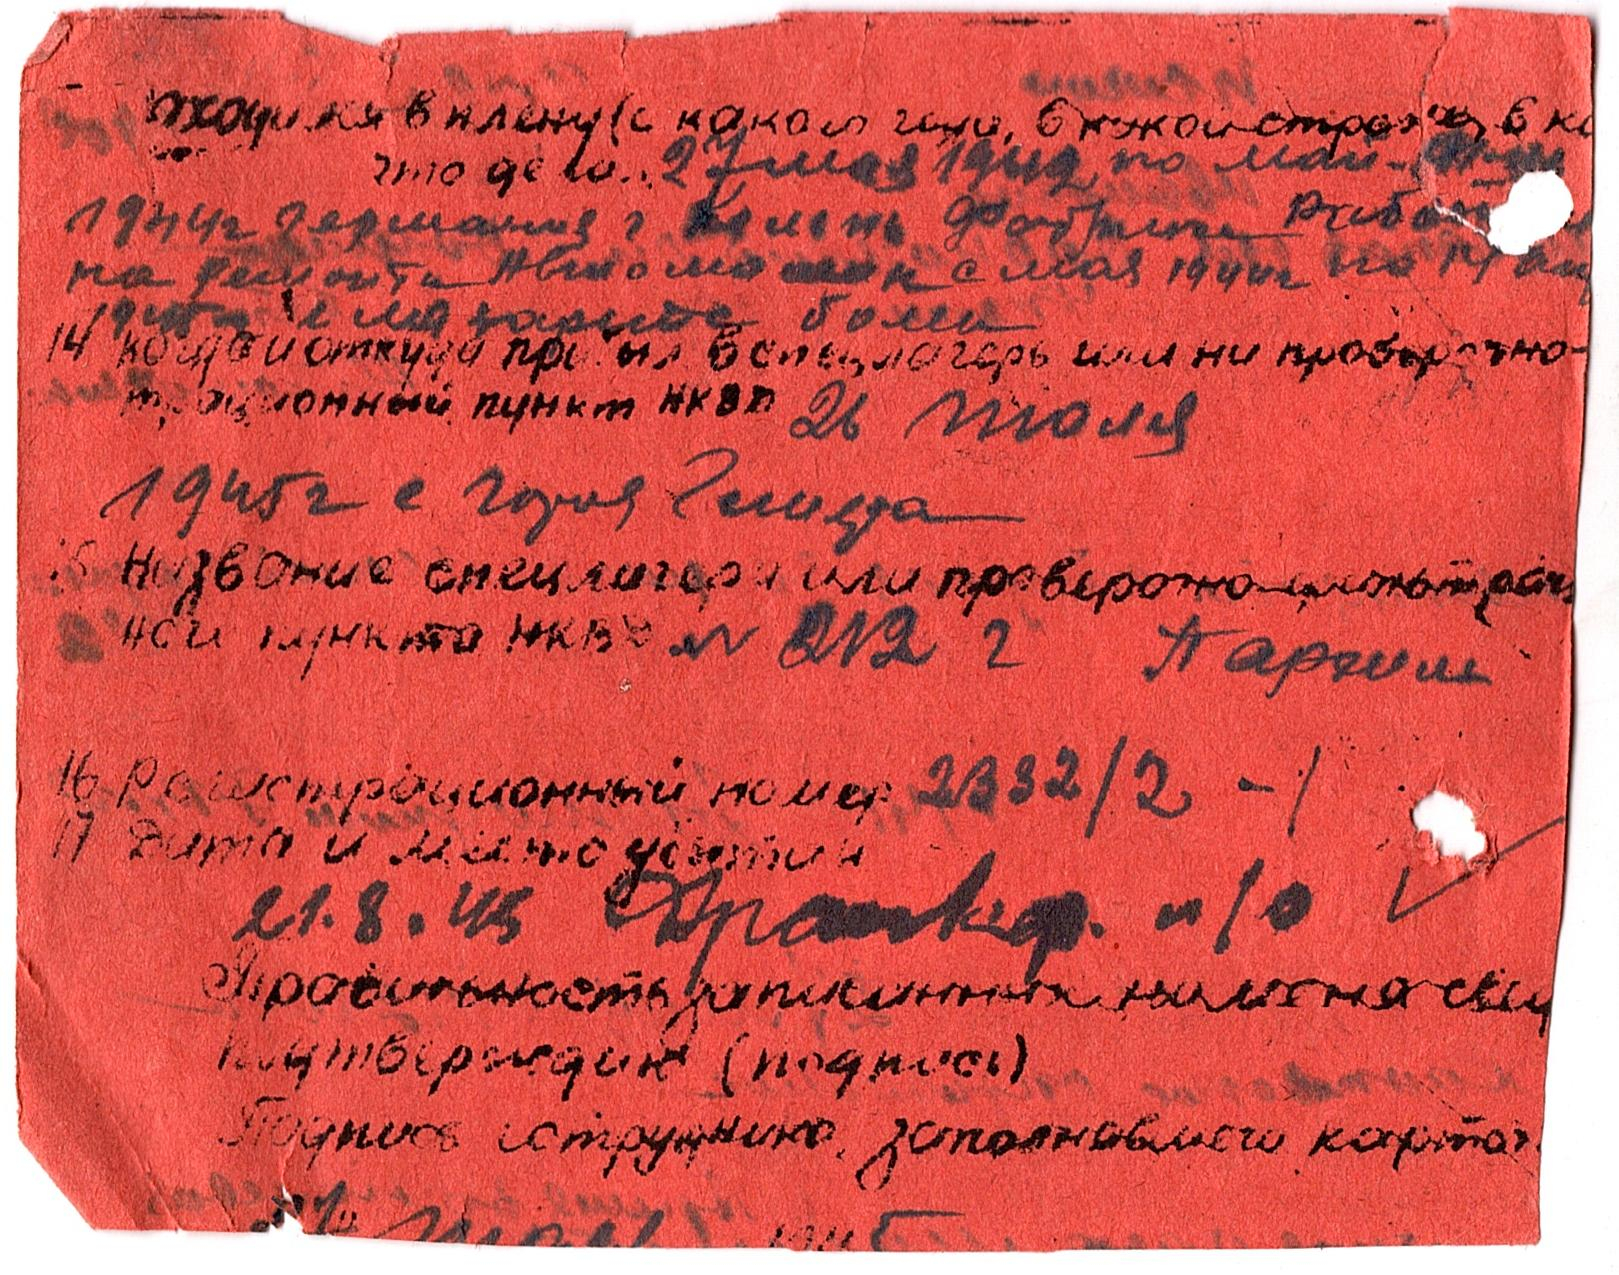 находился в плену (с какого года, в какой стране, в
что дел... 27 мая 1942 по май
1944г Германия г фабрике Работ
на ремонте Автомашин с мая 1944г по 14
1945г болел
14 когда и откуда прибыл в спецлагерь или на проверочно-
трационный пункт НКВД 26 Июля
1945г с города
15 Название спецлагеря или проверочно-фильтрац
ного пункта НКВД № 212 г Пархим
16 Регистрационный номер 2332/2 -/
17 Дата и место убытия
21.8.45 п/о
Правильность записанных на меня свед
подтверждаю (подпись)
Подпись сотрудника, заполнявшего карточ
1945